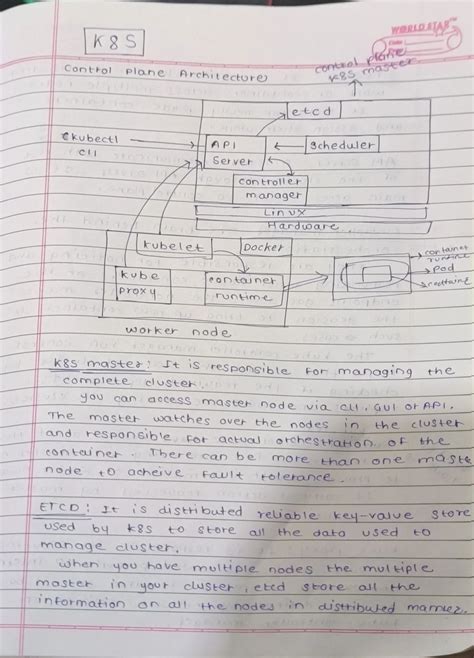 WORLD STAR
K8S
Control plane Architecture
control plane
k8s master
etcd
kubectl
cli
API
Server
Scheduler
controller
manager
Linux
Hardware
kubelet
Docker
kube
proxy
container
runtime
container
runtime
Pod
container
worker node
K8S master: It is responsible for managing the
complete cluster.
you can access master node via cli, GUI or API.
The master watches over the nodes in the cluster
and responsible for actual orchestration of the
container. There can be more than one maste
node to acheive fault tolerance.
ETCD: It is distributed reliable key-value store
used by k8s to store all the data used to
manage cluster.
when you have multiple nodes the multiple
master in your cluster, etcd store all the
information on all the nodes in distributed